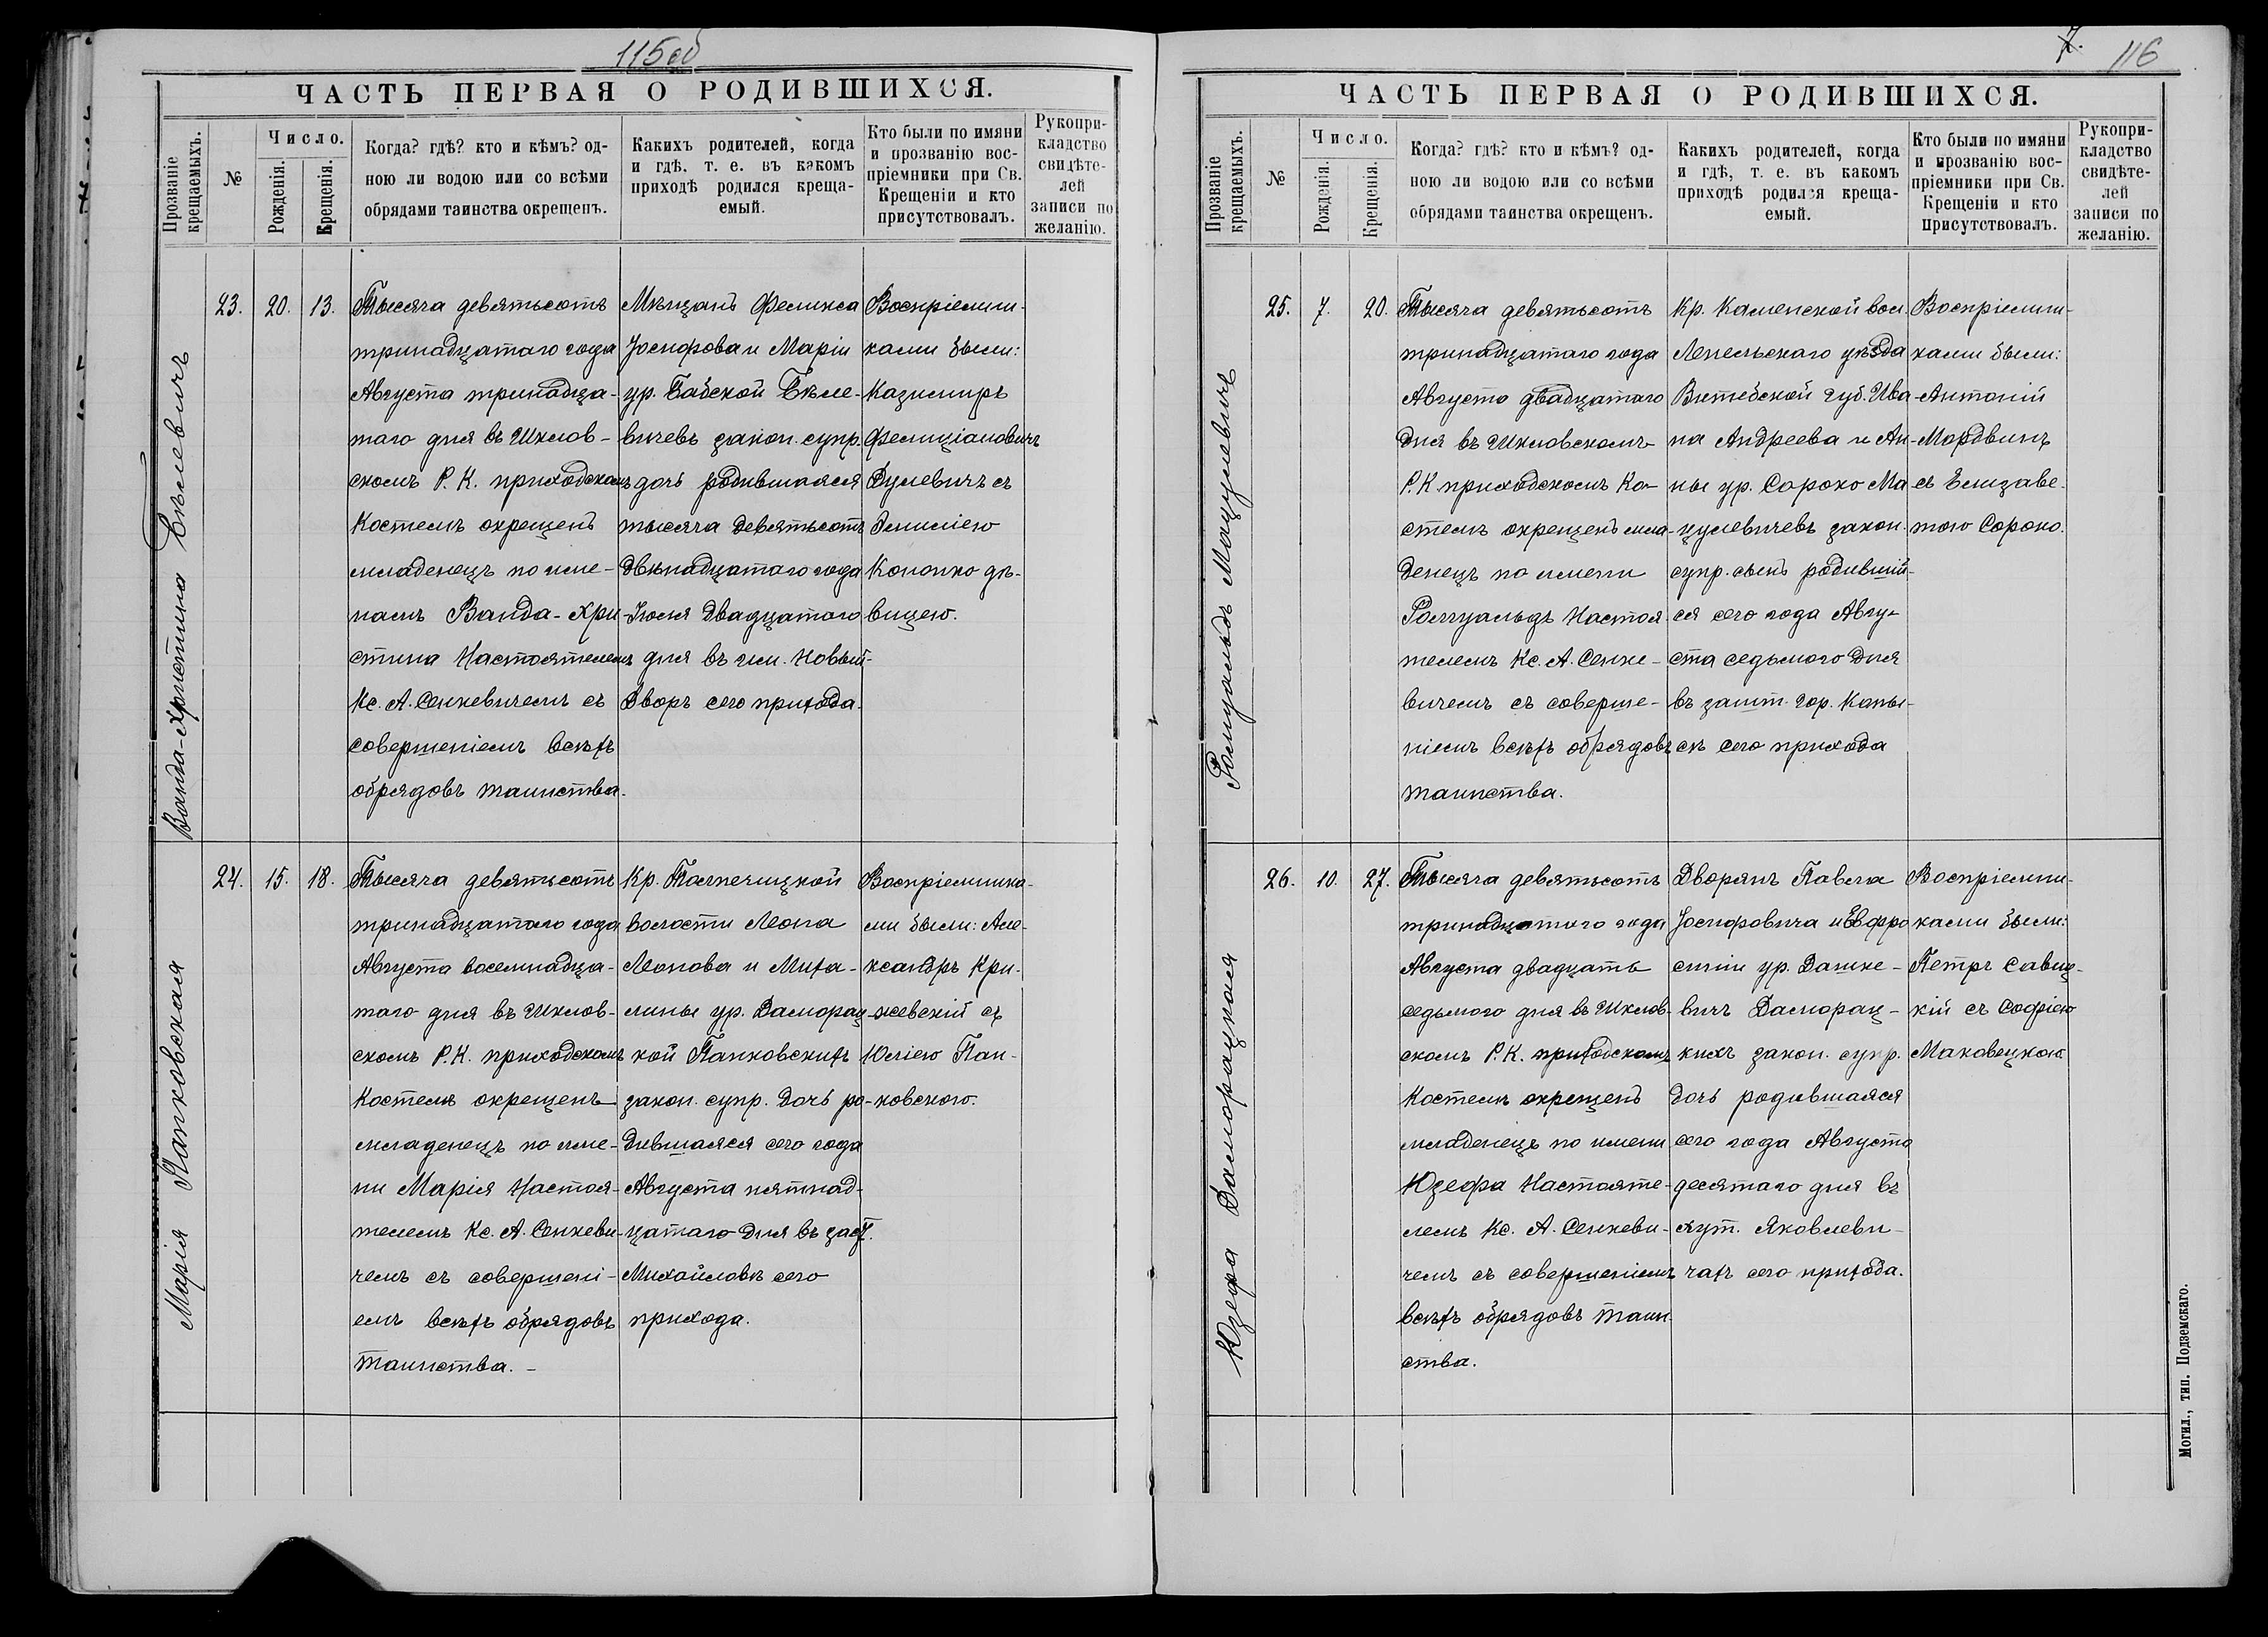 115об
ЧАСТЬ ПЕРВАЯ О РОДИВШИХСЯ.
Прозваніе крещаемыхъ.
№
Число.
Рожденія.
Крещенія.
Когда? гдѣ? кто и кѣмъ? од-
ною ли водою или со всѣми
обрядами таинства окрещенъ.
Какихъ родителей, когда
и гдѣ, т. е. въ какомъ
приходѣ родился креща-
емый.
Кто были по имяни
и прозванію вос-
пріемники при Св.
Крещеніи и кто
присутствовалъ.
Рукопри-
кладство
свидѣте-
лей
записи по
желанію.
Ванда-Христина Бѣлевичъ
23.
20.
13.
Тысяча девятьсотъ
тринадцатаго года
Августа тринадца-
таго дня въ Шклов-
скомъ Р. К. приходскомъ
Костелѣ окрещенъ
младенецъ по име-
намъ Ванда-Хри
стина Настоятелемъ
Кс. А. Сенкевичемъ съ
совершеніемъ всѣхъ
обрядовъ таинства.
Мѣщанъ Феликса
Іосифова и Маріи
ур. Бабской Бѣле-
вичевъ закон. супр.
дочь родившаяся
тысяча девятьсотъ
двѣнадцатаго года
Іюля двадцатаго
дня въ им. Новый-
Дворъ сего прихода.
Воспріемни-
ками были:
Казимиръ
Фелиціановичъ
Дулевичъ съ
Эмиліею
Конопко дѣ-
вицею.
Марія Папковская
24.
15.
18.
Тысяча девятьсотъ
тринадцатаго года
Августа восемнадца-
таго дня въ Шклов-
скомъ Р.К. приходскомъ
Костелѣ окрещенъ
младенецъ по име-
ни Марія Настоя-
телемъ Кс. А. Сенкеви-
чемъ съ совершені-
емъ всѣхъ обрядовъ
таинства. -
Кр. Толпечицкой
волости Леона
Леонова и Миха-
лины ур. Даморац-
кой Папковскихъ
закон. супр. дочь ро-
дившаяся сего года
Августа пятнад-
цатаго дня въ заст.
Михайловкѣ сего
прихода.
Воспріемника-
ми были: Але-
ксандръ Кри-
жевскій съ
Юліею Пап-
ковскою.
7.
116
ЧАСТЬ ПЕРВАЯ О РОДИВШИХСЯ.
Прозваніе крещаемыхъ.
№
Число.
Рожденія.
Крещенія.
Когда? гдѣ? кто и кѣмъ? од-
ною ли водою или со всѣми
обрядами таинства окрещенъ.
Какихъ родителей, когда
и гдѣ, т. е. въ какомъ
приходѣ родился креща-
емый.
Кто были по имяни
и прозванію вос-
пріемники при Св.
Крещеніи и кто
присутствовалъ.
Рукопри-
кладство
свидѣте-
лей
записи по
желанію.
Ромуальдъ Мацулевичъ
25.
7.
20.
Тысяча девятьсотъ
тринадцатаго года
Августа двадцатаго
дня въ Шкловскомъ
Р.К приходскомъ Ко-
стелѣ окрещенъ мла-
денецъ по имени
Ромуальдъ Настоя
телемъ Кс. А. Сенке-
вичемъ съ соверше-
ніемъ всѣхъ обрядовъ
таинства.
Кр. Каменской вол.
Лепельскаго уѣзда
Витебской губ. Ива-
на Андреева и Ан-
ны ур. Сороко Ма
цулевичевъ закон.
супр. сынъ родивший-
ся сего года Авгу-
ста седьмого дня
въ зашт. гор. Копы-
сѣ сего прихода
Воспріемни-
ками были:
Антоній
Мордвинъ
съ Елизаве-
тою Сороко.
Юзефа Даморацкая
26.
10.
27.
Тысяча девятьсотъ
тринадцатаго года
Августа двадцать
седьмого дня въ Шклов-
скомъ Р.К. приходскомъ
Костелѣ окрещенъ
младенецъ по имени
Юзефа Настояте-
лемъ Кс. А. Сенкеви-
чемъ съ совершеніемъ
всѣхъ обрядовъ таин
ства.
Дворянъ Павла
Іосифовича и Евфро
синіи ур. Дашке-
вичъ Даморац-
кихъ закон. супр.
дочь родившаяся
сего года Августа
десятаго дня въ
хут. Яковлеви-
чахъ сего прихода.
Воспріемни-
ками были:
Петръ Савиц-
кій съ Софіею
Маковецкою
Могил., тип. Подземскаго.